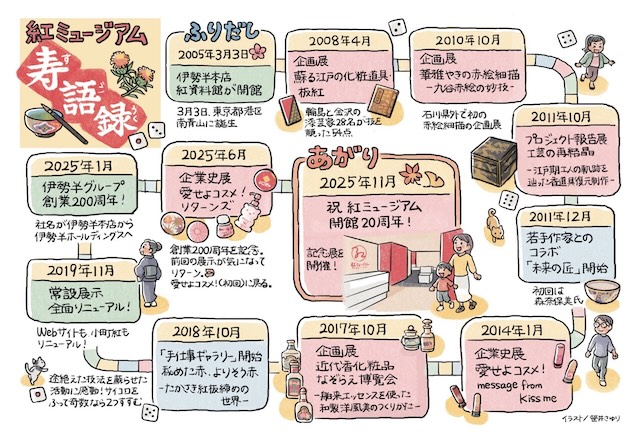 紅ミュージアム
寿語録
すごろく
ふりだし
2005年3月3日
伊勢半本店
紅資料館が開館
3月3日、東京都港区
南青山に誕生
2008年4月
企画展
蘇る江戸の化粧道具・
板紅
輪島と金沢の
漆芸家28名が技を
競った54点
2010年10月
企画展
華雅やきの赤絵細描
-九谷赤絵の妙技-
石川県外で初の
赤絵細描の企画展
2011年10月
プロジェクト報告展
工芸の再結晶
-江戸期工人の軌跡を
辿った香道具復元制作-
2011年12月
若手作家との
コラボ
「未来の匠」開始
初回は
森奈保美氏
2014年1月
企業史展
愛せよコスメ!
message from
Kiss me
2017年10月
企画展
近代香化粧品
なぞらえ博覧会
-舶来エッセンスを使った
和製洋風美のつくりかた-
2018年10月
「手仕事ギャラリー」開始
秘めた赤、よりそう赤
-たかさき紅板締めの
世界-
途絶えた技法を蘇らせた
活動に感動!サイコロを
ふって奇数なら2つすすむ。
2019年11月
常設展示
全面リニューアル!
Webサイトも小町紅も
リニューアル!
2025年1月
伊勢半グループ
創業200周年!
社名が伊勢半本店から
伊勢半ホールディングスへ
2025年6月
企業史展
愛せよコスメ!
リターンズ
創業200周年を記念。
前回の展示が気になって
リターン。
愛せよコスメ!(初回)に戻る。
あがり
2025年11月
祝 紅ミュージアム
開館20周年!
記念展を
開催!
イラスト/笹井さゆり